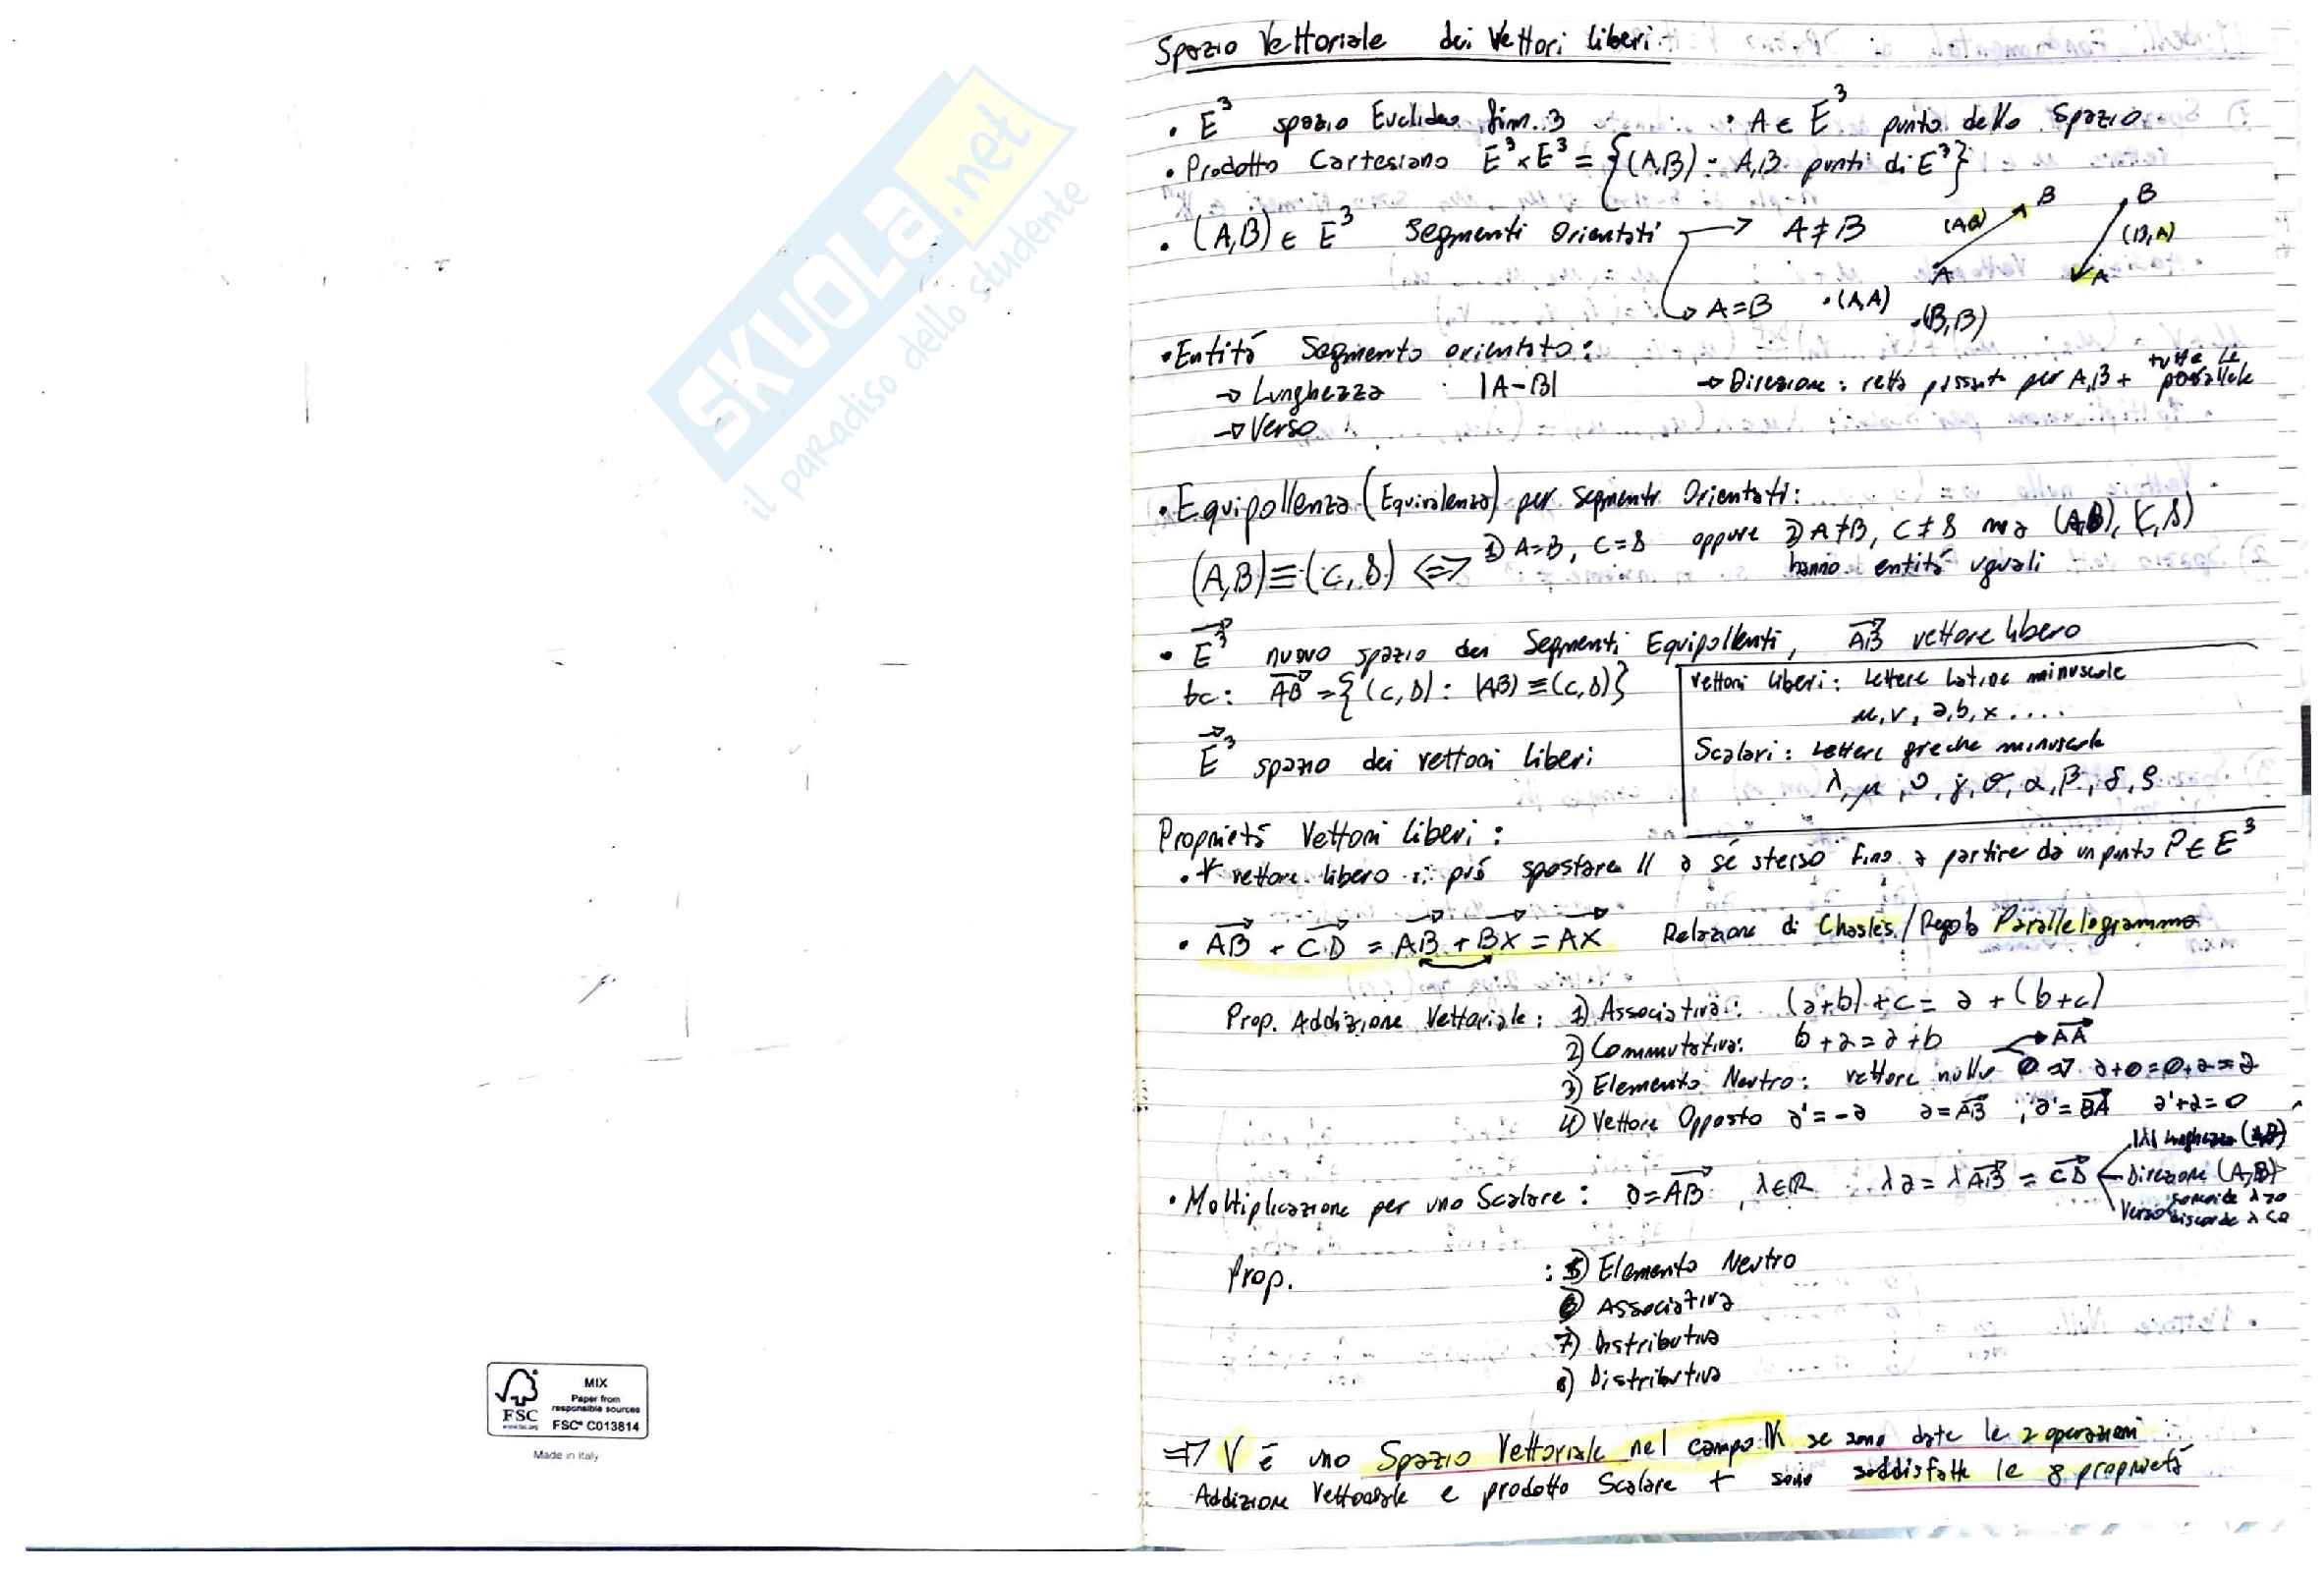 SKUOLA.net
il paradiso dello studente
FSC
www.fsc.org
MIX
Paper from
responsible sources
FSC® C013814
Made in Italy
Spazio Vettoriale dei Vettori Liberi
• E³ spazio Euclideo dim. 3 • A ∈ E³ punto dello Spazio
• Prodotto Cartesiano E³ × E³ = {(A,B) : A,B punti di E³}
• (A,B) ∈ E³ Segmenti Orientati → A ≠ B (AB) A B B (B,A) A
↳ A = B • (A,A) • (B,B)
• Entità Segmento orientato:
→ Lunghezza |A-B| → Direzione: retta passante per A,B + tutte le parallele
→ Verso
• Equipollenza (Equivalenza) per segmenti Orientati:
(A,B) ≡ (C,D) ⟺ 1) A=B, C=D oppure 2) A≠B, C≠D ma (A,B), (C,D)
hanno entità uguali
• E³ nuovo spazio dei Segmenti Equipollenti, AB vettore libero
tc: AB = {(C,D) : (AB) ≡ (C,D)}
E³ spazio dei vettori liberi
Vettori liberi: Lettere Latine minuscole
u, v, a, b, x ....
Scalari: Lettere greche minuscole
λ, μ, ν, γ, σ, α, β, δ, ρ
Proprietà Vettori Liberi:
• ∀ vettore libero si può spostare // a sé stesso fino a partire da un punto P ∈ E³
• AB + CD = AB + BX = AX Relazione di Chasles / Regola Parallelogramma
Prop. Addizione Vettoriale: 1) Associativa: (a+b)+c = a+(b+c)
2) Commutativa: b+a = a+b
3) Elemento Neutro: vettore nullo 0 → AA ⇒ a+0=0+a=a
4) Vettore Opposto a' = -a a = AB, a' = BA a'+a = 0
• Moltiplicazione per uno Scalare: a = AB, λ∈R λa = λAB = CD
|λ| lunghezza (AB)
Direzione (A,B)
Verso concorde λ>0
discorde λ<0
Prop. : 5) Elemento Neutro
6) Associativa
7) Distributiva
8) Distributiva
⇒ V è uno Spazio Vettoriale nel campo K se sono date le 2 operazioni
Addizione Vettoriale e prodotto Scalare + sono soddisfatte le 8 proprietà